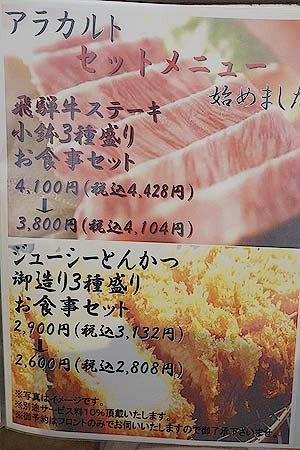 アラカルト
セットメニュー
始めました
飛騨牛ステーキ
小鉢3種盛り
お食事セット
4,100円(税込4,428円)
↓
3,800円(税込4,104円)
ジューシーとんかつ
御造り3種盛り
お食事セット
2,900円(税込3,132円)
↓
2,600円(税込2,808円)
※写真はイメージです。
※別途サービス料10%頂戴いたします。
※御予約はフロントのみでお伺いいたしますので御了承下さいませ。